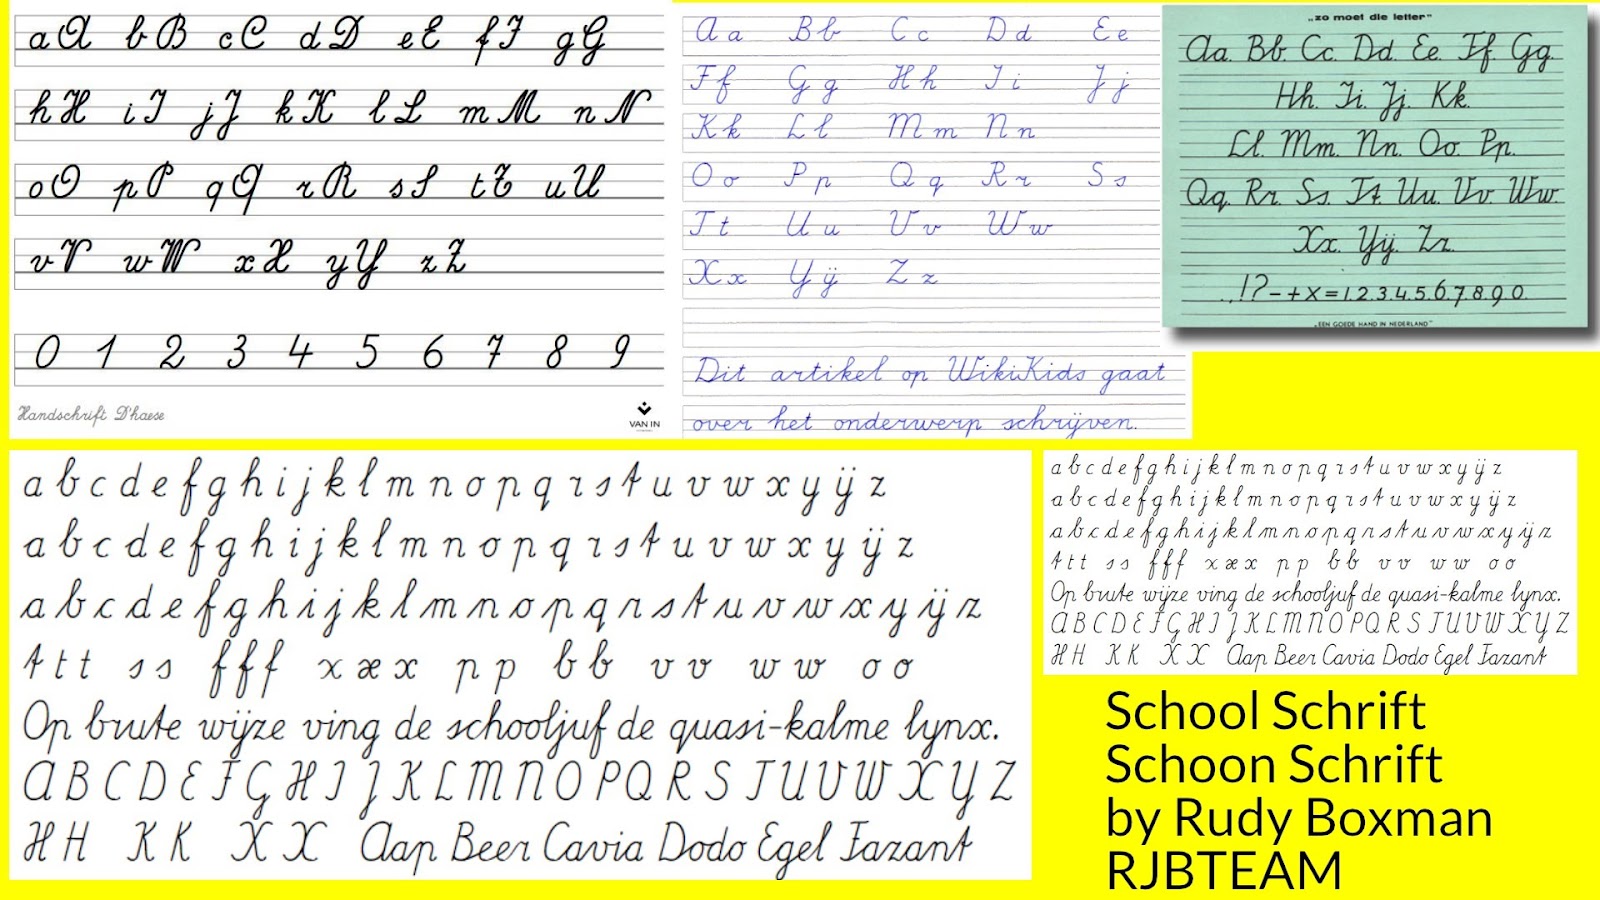 aA bB cC dD eE fF gG
hH iI jJ kK lL mM nN
oO pP qQ rR sS tT uU
vV wW xX yY zZ
0 1 2 3 4 5 6 7 8 9
Handschrift D'haese
VAN IN
Aa Bb Cc Dd Ee
Ff Gg Hh Ii Jj
Kk Ll Mm Nn
Oo Pp Qq Rr Ss
Tt Uu Vv Ww
Xx Yÿ Zz
Dit artikel op WikiKids gaat
over het onderwerp schrijven.
„zo moet die letter"
Aa. Bb. Cc. Dd. Ee. Ff. Gg.
Hh. Ii. Jj. Kk.
Ll. Mm. Nn. Oo. Pp.
Qq. Rr. Ss. Tt. Uu. Vv. Ww.
Xx. Yÿ. Zz.
.,!?-+x=1.2.3.4.5.6.7.8.9.0.
„EEN GOEDE HAND IN NEDERLAND"
a b c d e f g h i j k l m n o p q r s t u v w x y ÿ z
a b c d e f g h i j k l m n o p q r s t u v w x y ÿ z
a b c d e f g h i j k l m n o p q r s t u v w x y ÿ z
t t t s s f f f x æ x p p b b v v w w o o
Op brute wijze ving de schooljuf de quasi-kalme lynx.
A B C D E F G H I J K L M N O P Q R S T U V W X Y Z
H H K K X X Aap Beer Cavia Dodo Egel Fazant
a b c d e f g h i j k l m n o p q r s t u v w x y ÿ z
a b c d e f g h i j k l m n o p q r s t u v w x y ÿ z
a b c d e f g h i j k l m n o p q r s t u v w x y ÿ z
t t t s s f f f x æ x p p b b v v w w o o
Op brute wijze ving de schooljuf de quasi-kalme lynx.
A B C D E F G H I J K L M N O P Q R S T U V W X Y Z
H H K K X X Aap Beer Cavia Dodo Egel Fazant
School Schrift
Schoon Schrift
by Rudy Boxman
RJBTEAM